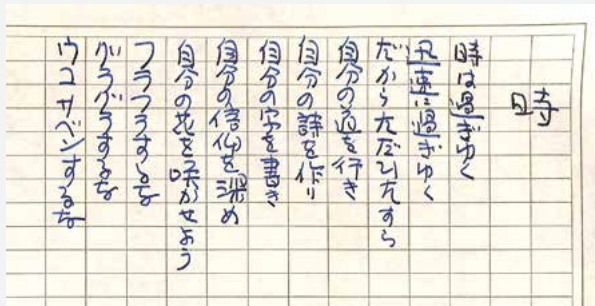 時
時は過ぎゆく
迅速に過ぎゆく
だからただひたすら
自分の道を行き
自分の詩を作り
自分の字を書き
自分の信仰を深め
自分の花を咲かせよう
フラフラするな
グラグラするな
ウコサベンするな